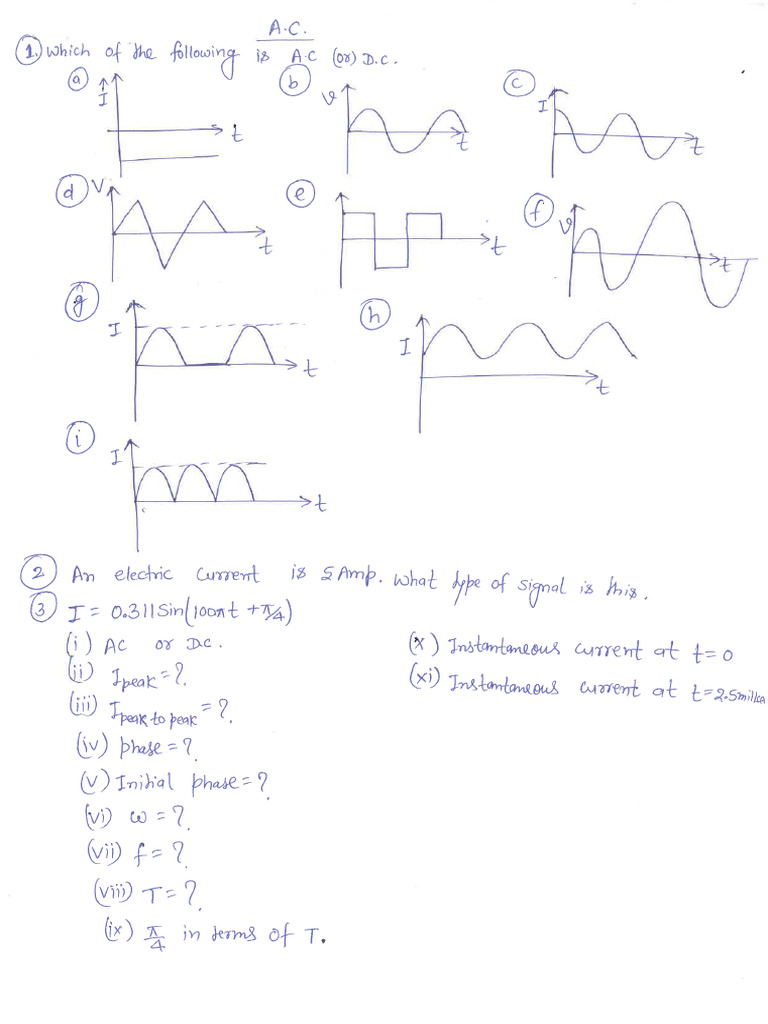 A.C.
① Which of the following is A.C (or) D.C.
ⓐ ⓑ ⓒ
I t V t I t
ⓓ ⓔ ⓕ
V t t V t
ⓖ ⓗ
I t I t
ⓘ
I t
② An electric current is 5 Amp. What type of signal is this.
③ I = 0.311 Sin(100πt + π/4)
(i) AC or D.C.
(ii) Ipeak = ?
(iii) Ipeak to peak = ?
(iv) phase = ?
(v) Initial phase = ?
(vi) ω = ?
(vii) f = ?
(viii) T = ?
(ix) π/4 in terms of T.
(x) Instantaneous current at t = 0
(xi) Instantaneous current at t = 2.5